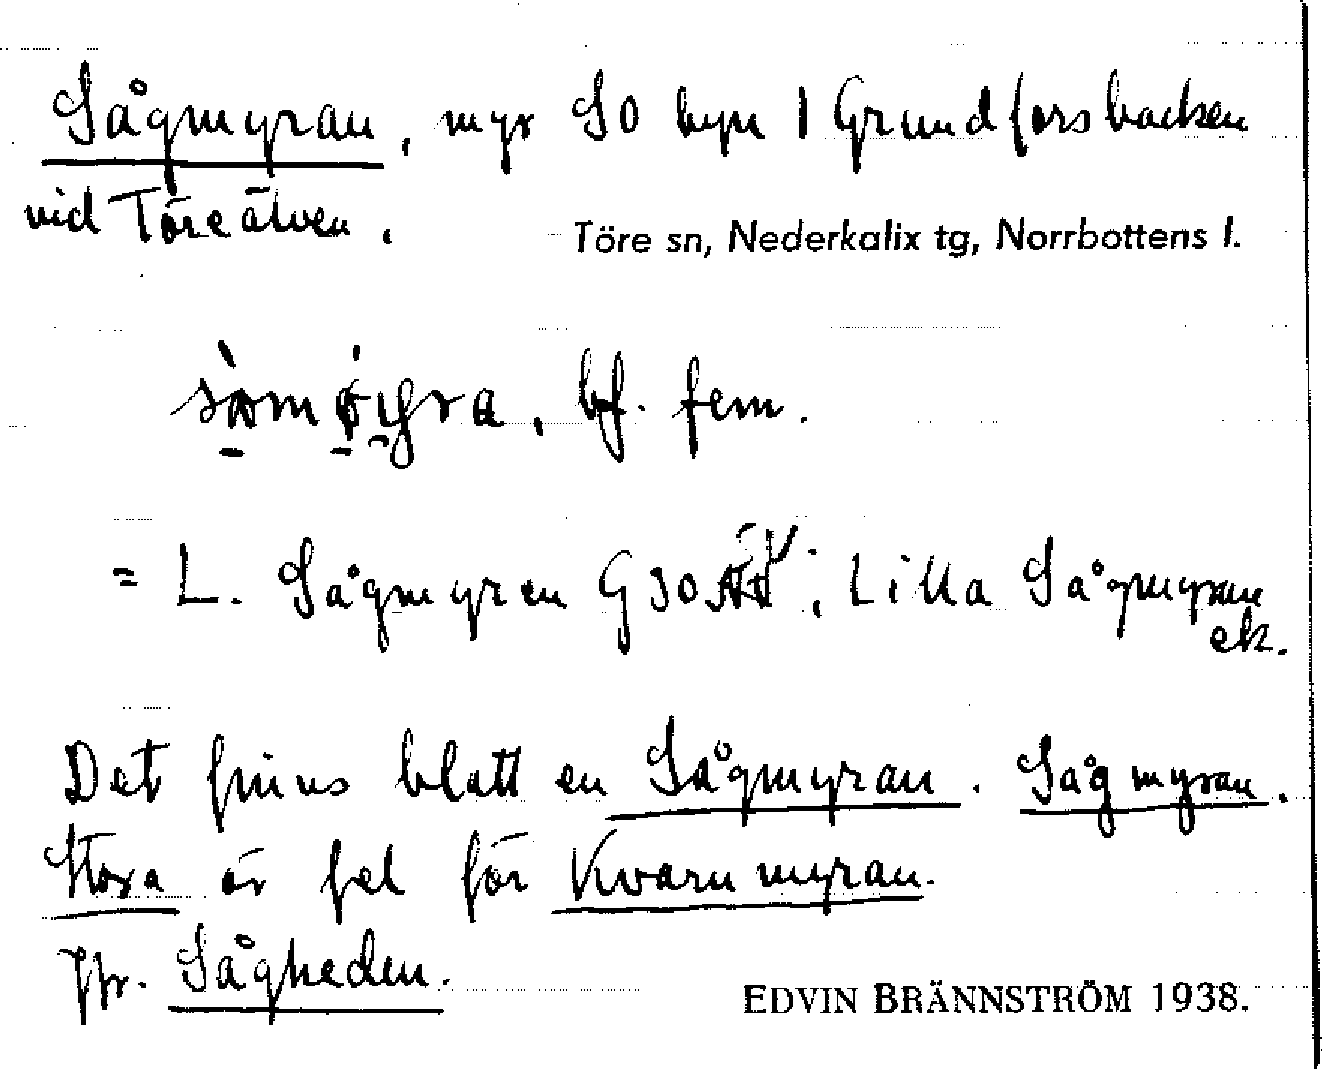 Sågmyran, myr SO byn 1 Grundforsbacken
vid Töreälven.
Töre sn, Nederkalix tg, Norrbottens l.
bf. fem.
= L. Sågmyren G30ÄK; Lilla Sågmyran
ek.
Det finns blott en Sågmyran. Sågmyran.
Stora är fel för Kvarnmyran.
Jfr. Sågheden.
EDVIN BRÄNNSTRÖM 1938.